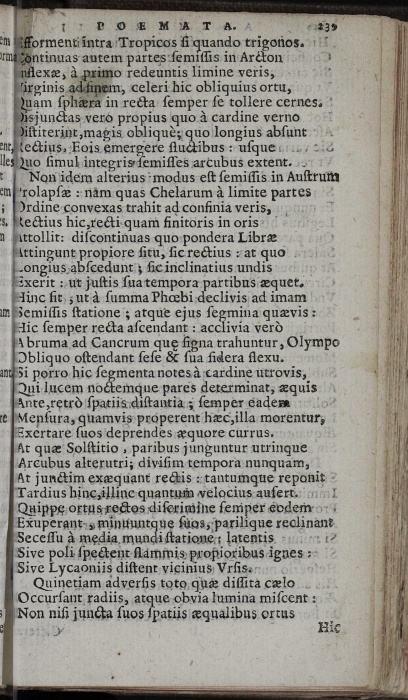 POEMATA. 239
Efforment intra Tropicos si quando trigonos.
Continuas autem partes semissis in Arcton
Inflexæ, à primo redeuntis limine veris,
Virginis ad finem, celeri hic obliquius ortu,
Quam sphæra in recta semper se tollere cernes.
Disjunctas vero propius quo à cardine verno
Distiterint, magis obliquè; quo longius absunt
Rectius, Eois emergere fluctibus: usque
Quo simul integris semisses arcubus extent.
Non idem alterius modus est semissis in Austrum
Prolapsæ: nam quas Chelarum à limite partes
Ordine convexas trahit ad confinia veris,
Rectius hic, recti quam finitoris in oris
Attollit: discontinuas quo pondera Libræ
Attingunt propiore situ, sic rectius: at quo
Longius abscedunt; sic inclinatius undis
Exerit: ut justis sua tempora partibus æquet.
Hinc sit, ut à summa Phœbi declivis ad imam
Semissis statione; atque ejus segmina quævis:
Hic semper recta ascendant: acclivia verò
A bruma ad Cancrum quę signa trahuntur, Olympo
Obliquo ostendant sese & sua sidera flexu.
Si porro hic segmenta notes à cardine utrovis,
Qui lucem noctemque pares determinat, æquis
Ante, retrò spatiis distantia; semper eadem
Mensura, quamvis properent hæc, illa morentur,
Exertare suos deprendes æquore currus.
At quæ Solstitio, paribus junguntur utrinque
Arcubus alterutri; divisim tempora nunquam,
At junctim exæquant rectis: tantumque reponit
Tardius hinc, illinc quantum velocius aufert.
Quippe ortus rectos discrimine semper eodem
Exuperant, minuuntque suos, parilique reclinant
Secessu à media mundi statione: latentis
Sive poli spectent flammis propioribus ignes:
Sive Lycaoniis distent vicinius Ursis.
Quinetiam adversis toto quæ dissita cælo
Occursant radiis, atque obvia lumina miscent:
Non nisi juncta suos spatiis æqualibus ortus
Hic